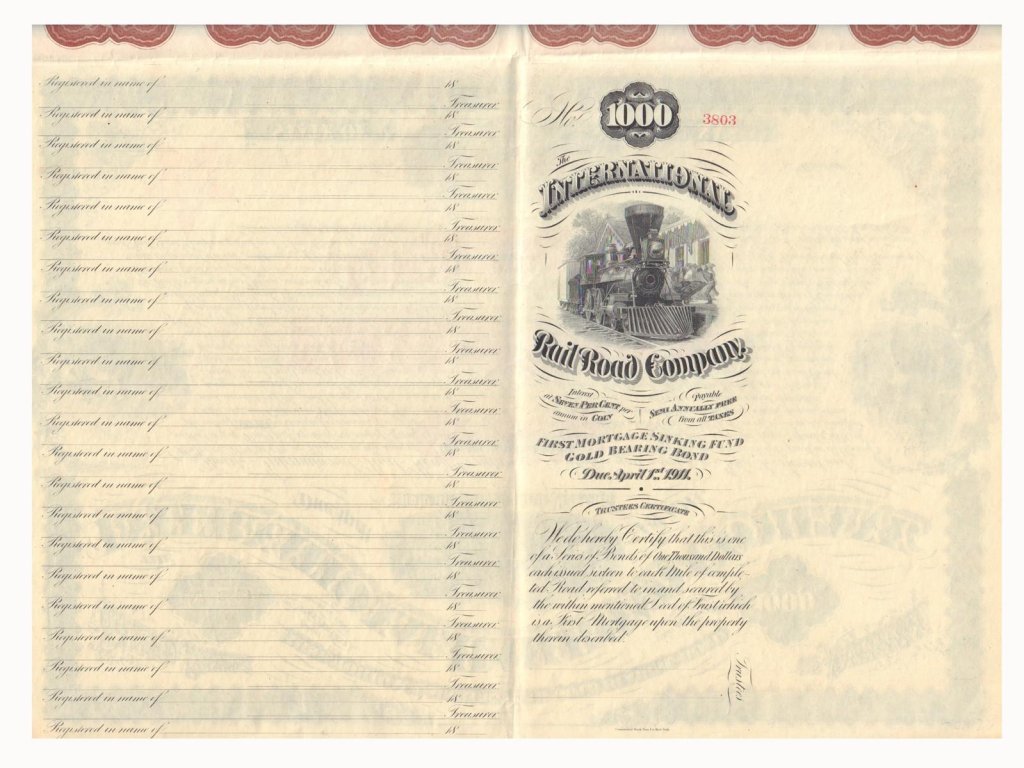 Registered in name of 18
Treasurer
Registered in name of 18
Treasurer
Registered in name of 18
Treasurer
Registered in name of 18
Treasurer
Registered in name of 18
Treasurer
Registered in name of 18
Treasurer
Registered in name of 18
Treasurer
Registered in name of 18
Treasurer
Registered in name of 18
Treasurer
Registered in name of 18
Treasurer
Registered in name of 18
Treasurer
Registered in name of 18
Treasurer
Registered in name of 18
Treasurer
Registered in name of 18
Treasurer
Registered in name of 18
Treasurer
Registered in name of 18
Treasurer
Registered in name of 18
Treasurer
Registered in name of 18
Treasurer
Registered in name of 18
Treasurer
Registered in name of 18
Treasurer
Registered in name of 18
Treasurer
Registered in name of 18
No. 1000 3803
The
INTERNATIONAL
Rail Road Company.
Interest
at SEVEN PER CENT per
annum in COIN
Payable
SEMI ANNUALLY FREE
from all TAXES
FIRST MORTGAGE SINKING FUND
GOLD BEARING BOND
Due, April 1st 1911.
TRUSTEES CERTIFICATE
We do hereby Certify that this is one
of a Series of Bonds of One Thousand Dollars
each issued sixteen to each Mile of comple-
ted Road referred to in and secured by
the within mentioned Deed of Trust which
is a First Mortgage upon the property
therein described.
Trustees